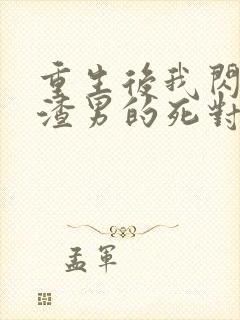 重生後我閃
渣男的死對
孟軍